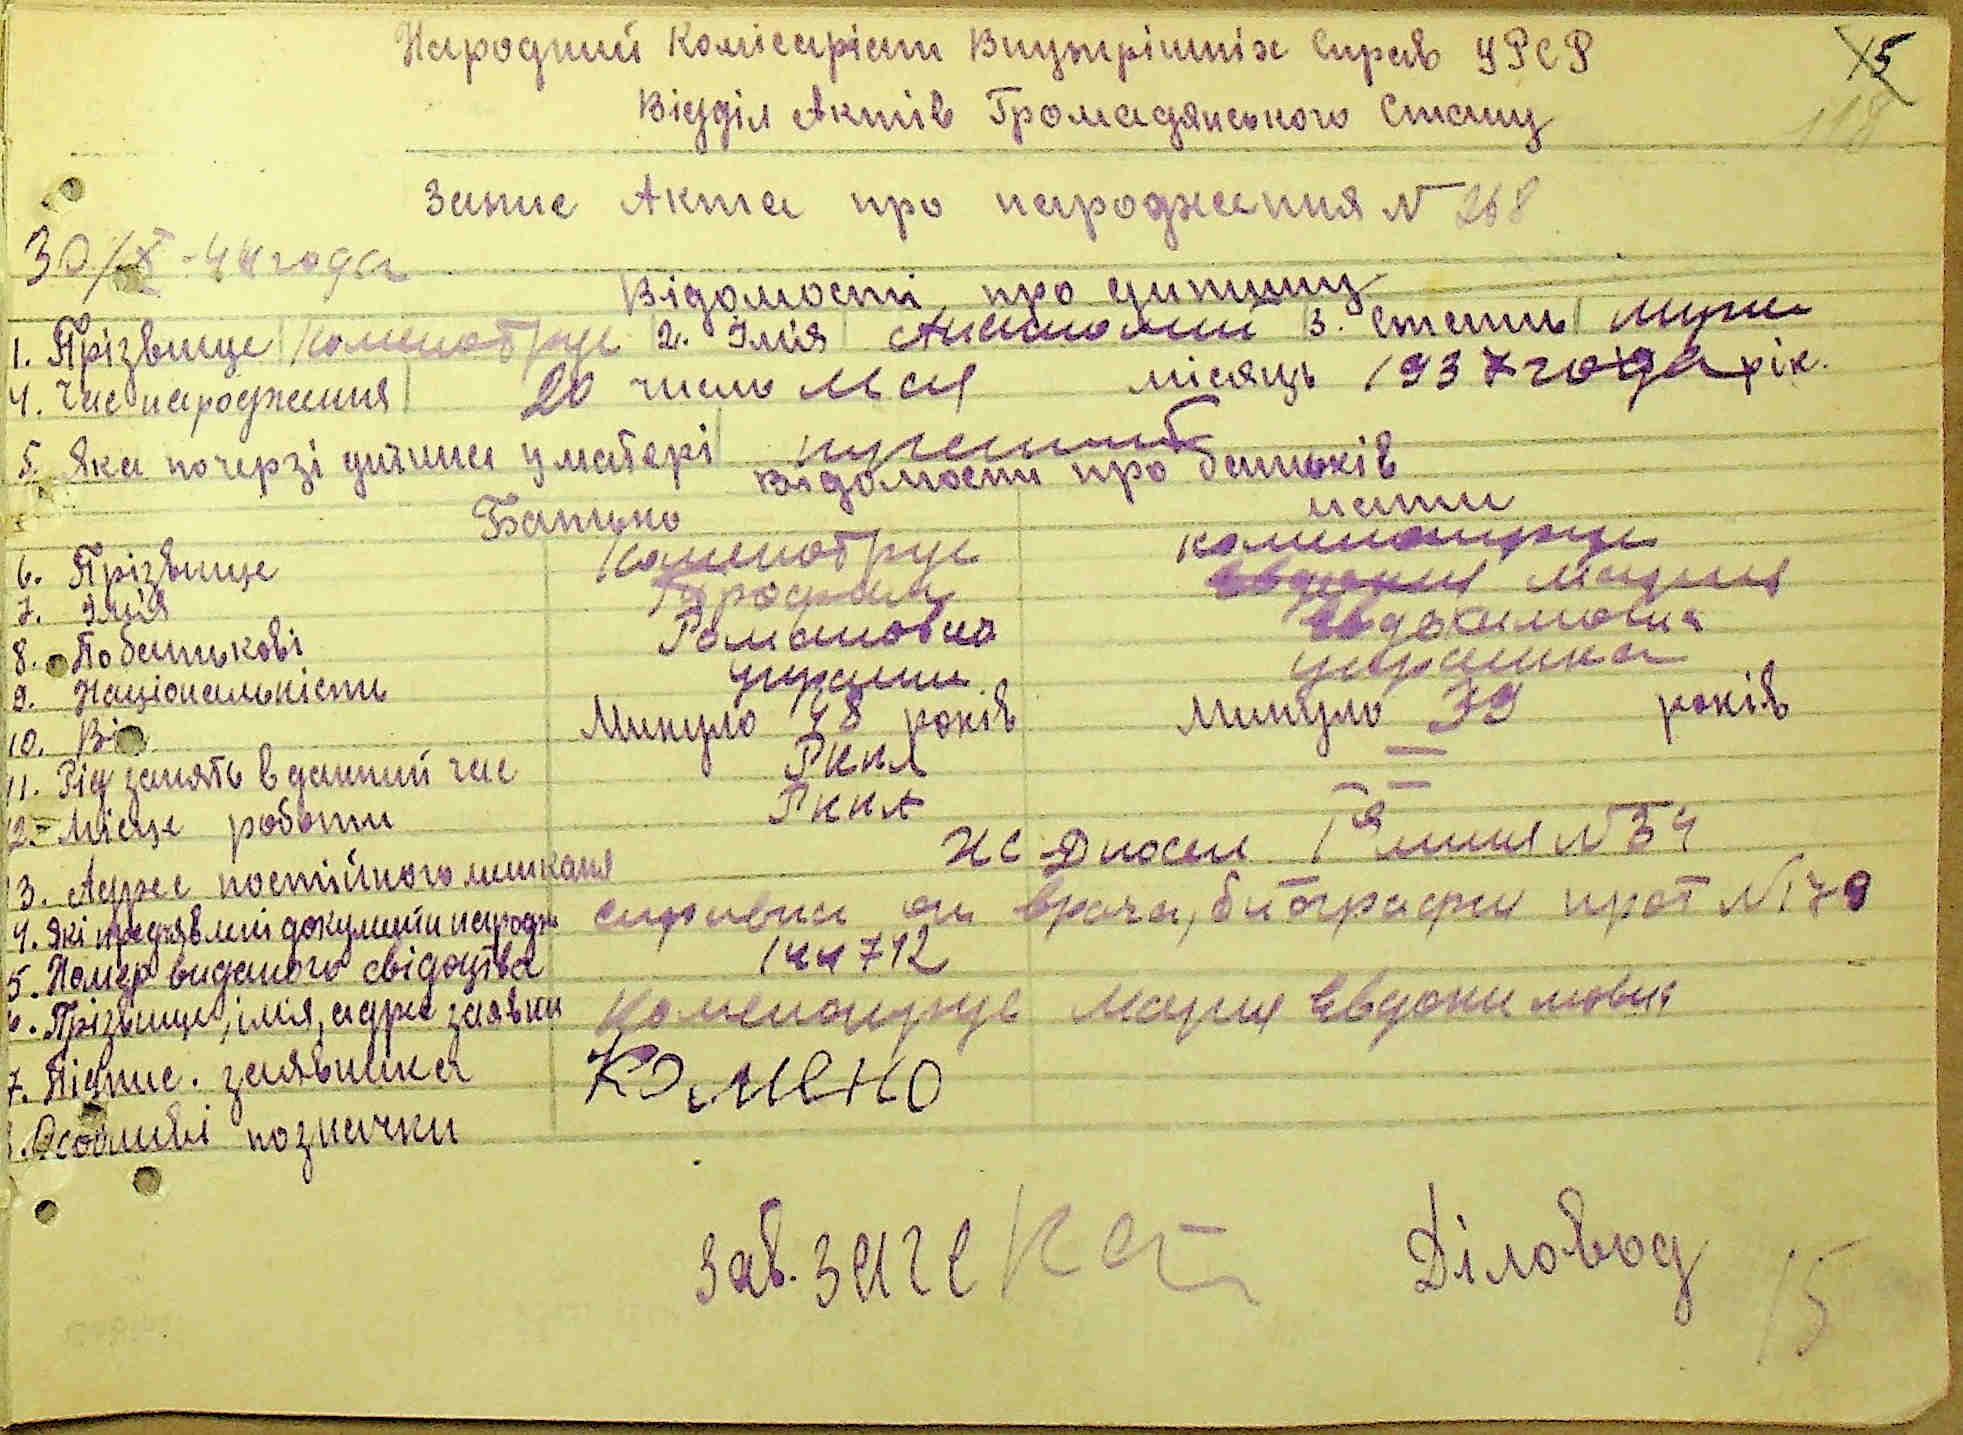 Народний Комісаріат Внутрішніх Справ УРСР
5
Відділ Актів Громадянського Стану
118
Запис Акта про народження N 268
30/X-44 года
Відомості про дитину
1. Прізвище Коменотрус 2. Імія Анатолий 3. Стать муж
4. Час народження 20 число мая місяць 1937 года рік.
5. Яка по черзі дитина у матері
Відомости про батьків
Батько мати
6. Прізвище Коменотрус Коменотрус
7. Імія Трофим Мария
8. По батькові Романович Евдокимовна
9. Національність украин. украинка
10. Вік Минуло 48 років Минуло 39 років
11. Рід занять в данний час РККА —
12. Місце роботи РККА —
13. Адрес постійного мешканя НС Дносел 1я линия N 34
4. Які предъявлені документи народж справка от врача, биографи прот N 179
5. Номер виданого свідоцтва 144712
6. Прізвище, імія, адрес заявни Коменотрус Мария Евдокимовна
7. Підпис. заявника Комено
Особливі позначки
Зав. ЗАГС Діловод
15